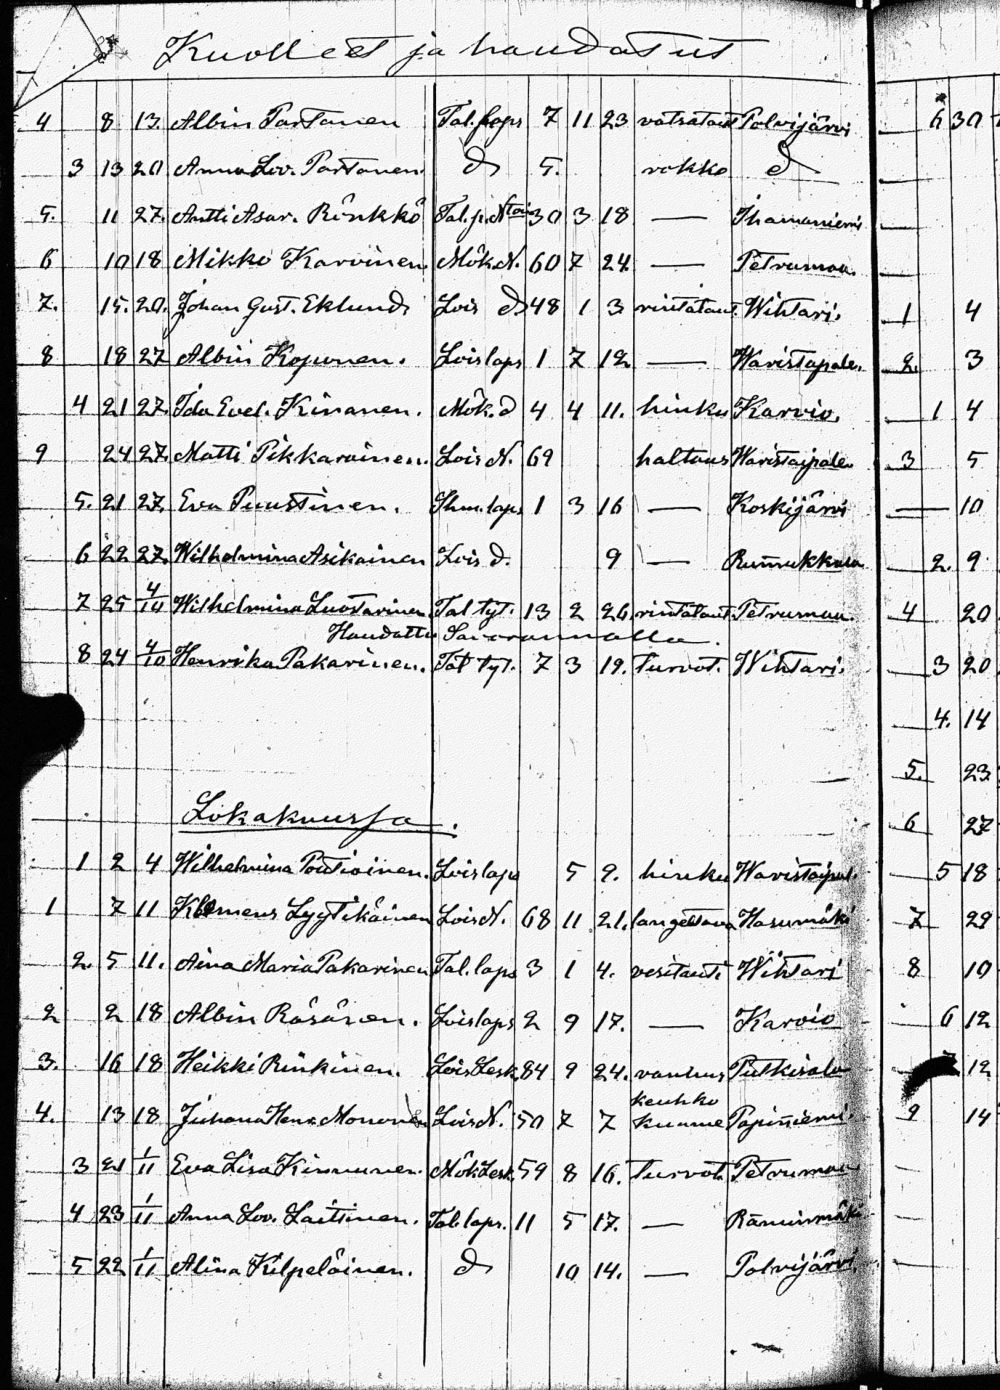 Kuolleet ja haudatut
4 8 13. Albin Partanen Tal. laps 7 11 23 vatsataut Polvijärvi
3 13 20 Anna Lov. Partanen. d 5. rokko d
5. 11 27. Antti Asar. Rönkkö 30 3 18 — Ihamaniemi
6 10 18 Mikko Karvinen. Mök. N. 60 7 24. — Petrumaa.
7. 15. 20. Johan Gust. Eklund Lois d 48 1 3 rintataut. Wihtari.
8 18 27 Albin Koponen. Lois laps 1 7 12 — Waristapale.
4 21 27. Ida Evel. Kinanen. Mök. d 4 4 11. hinku Karvio.
9 24 27. Matti Pikkarainen. Lois N. 69 haltaus Waristaipale
5. 21 27. Eva Puustinen. laps 1 3 16 — Koskijärvi
6 22 27. Wilhelmina Asikainen Lois d. 9 — Rummukkala
7 25 4/10 Wilhelmina Luotarinen. Tal. tyt. 13 2 26. rintataut. Petrumaa.
Haudattu Savonrannalla.
8 24 4/10 Henrika Pakarinen. Tal tyt. 7 3 19. turvot. Wihtari.
Lokakuussa.
1 2 4 Wilhelmina Loislaps 5 9. hinku Waristaipal.
1 7 11 Klemens Lyytikäinen Lois N. 68 11 21. langettava Hasumäki
2. 5 11. Aina Maria Pakarinen Tal. laps 3 1 4. vesitauti Wihtari
2 2 18 Albin Räsänen. Loislaps 2 9 17. — Karvio
3. 16 18 Heikki Rinkinen. Lois Lesk. 84 9 24. vanhus Putkisalo
4. 13 18 Juhana Hena. Mononen Lois N. 50 7 7 keuhko kuume Papinniemi.
3 21 1/11 Eva Lisa Kinnunen. Mök Lesk. 59 8 16. turvot. Petrumaa
4 23 1/11 Anna Lov. Laitinen. Tal. laps. 11 5 17. — Räminmäki
5 22 1/11 Alina Kilpeläinen. d 10 14. — Polvijärvi.
6 30
1 4
2. 3
1 4
3 5
— 10
2. 9
4 20
3 20
4. 14
5. 23
6 27
5 18
7 29
8 10
6 12
12
9 14